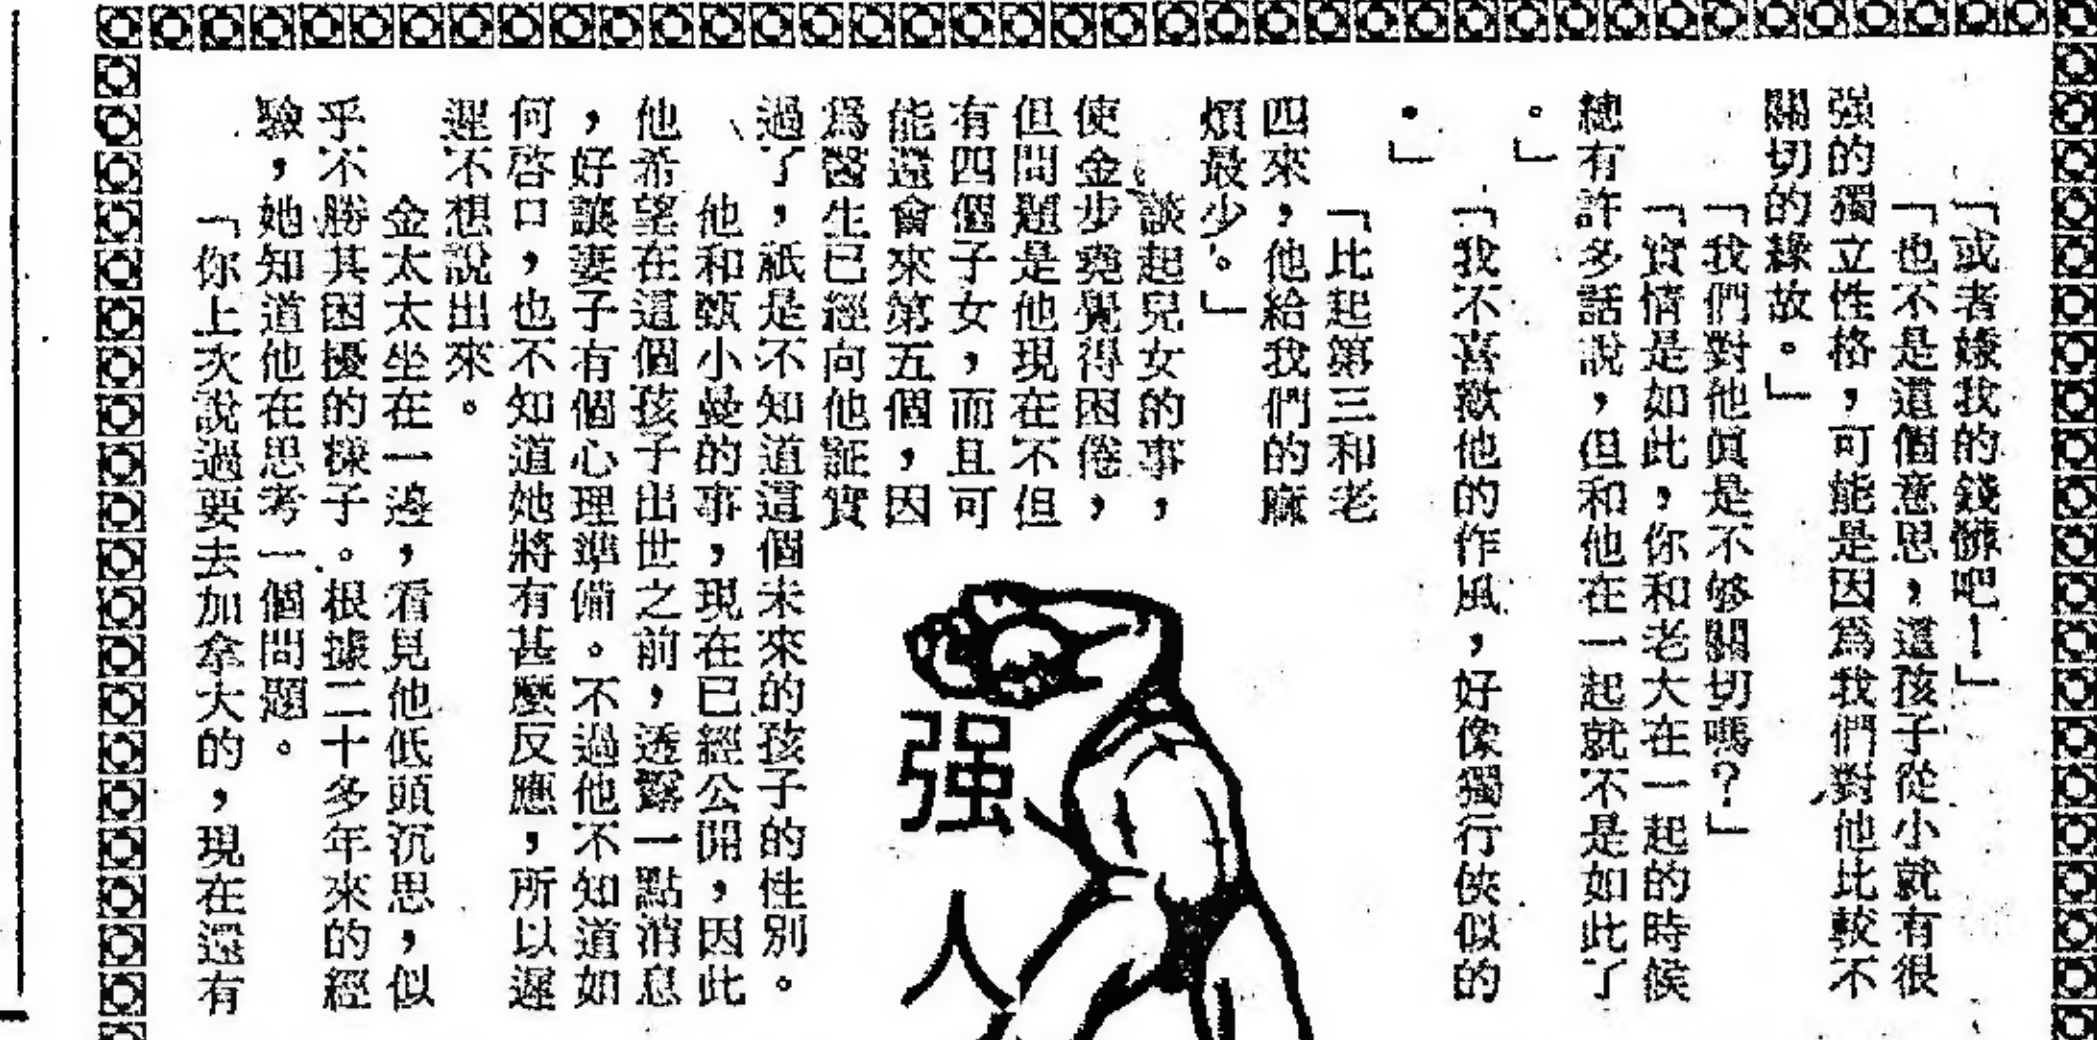 「或者嫌我的錢髒吧！」
「也不是這個意思，這孩子從小就有很
强的獨立性格，可能是因爲我們對他比較不
關切的緣故。」
「我們對他眞是不够關切嗎？」
「實情是如此，你和老大在一起的時候
總有許多話說，但和他在一起就不是如此了
。」
「我不喜歡他的作風，好像獨行俠似的
。」
「比起第三和老
四來，他給我們的麻
煩最少。」
談起兒女的事，
使金步堯覺得困倦，
但問題是他現在不但
有四個子女，而且可
能還會來第五個，因
爲醫生已經向他証實
過了，祇是不知道這個未來的孩子的性別。
他和甄小曼的事，現在已經公開，因此
他希望在這個孩子出世之前，透露一點消息
，好讓妻子有個心理準備。不過他不知道如
何啓口，也不知道她將有甚麼反應，所以遲
遲不想說出來。
金太太坐在一邊，看見他低頭沉思，似
乎不勝其困擾的樣子。根據二十多年來的經
驗，她知道他在思考一個問題。
「你上次說過要去加拿大的，現在還有
强人